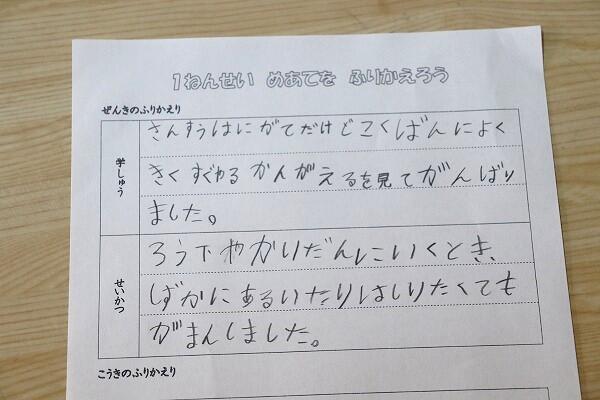 1ねんせい めあてを ふりかえろう
ぜんきのふりかえり
学しゅう
さんすうはにがてだけどこくばんによく
きくすぐやるかんがえるを見てがんばり
ました。
せいかつ
ろう下やかいだんにいくとき、
しずかにあるいたりはしりたくても
がまんしました。
こうきのふりかえり